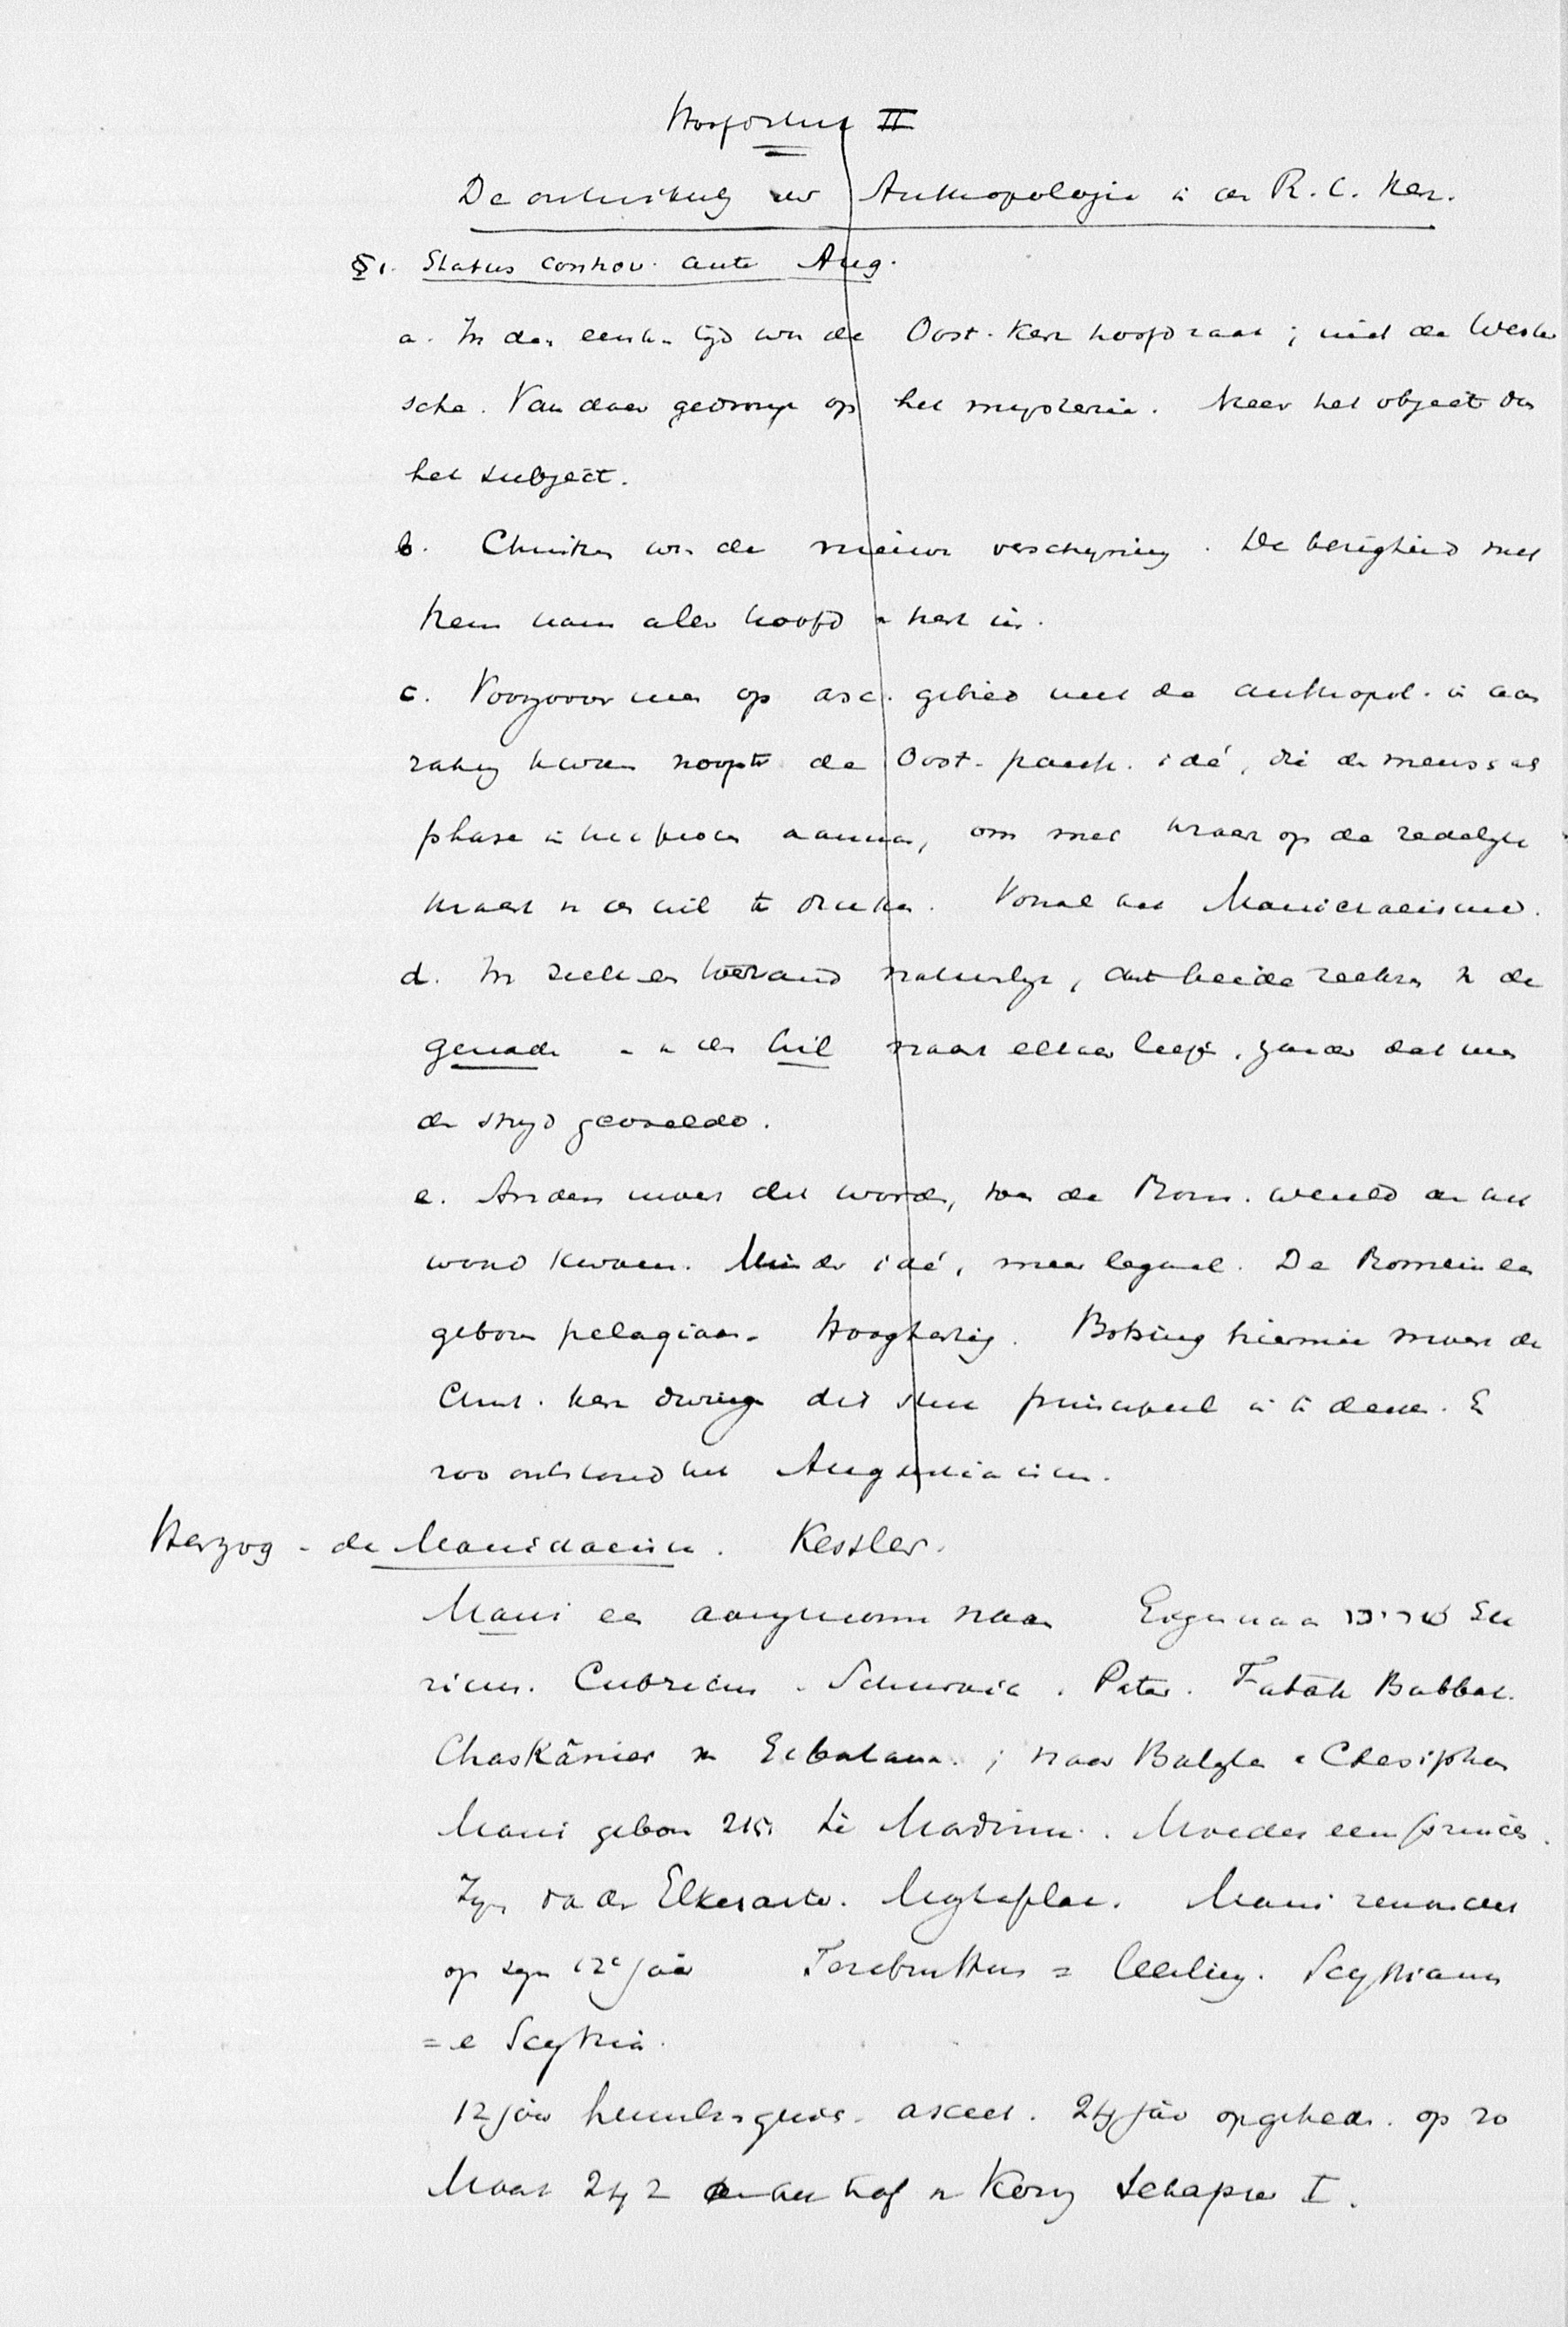 Hoofdstuk II
De ontwikkeling der Anthropologie in de R. C. Kerk.
§1. Status controv. ante Aug.
a. In den eersten tijd was de Oost. Kerk hoofdzaak; niet de Wester
sche. Van daar gedrongen op het mysterie. Meer het object dan
het subject.
b. Christus was de nieuwe verschijning. De bezigheid met
Hem nam aller hoofd en hart in.
c. Voorzoover men op asc. gebied met de anthropol. in aan
raking kwam noopte de Oost. panth. idé, die den mensch als
phase in het proces aannam, om met kracht op de zedelijke
kracht van den wil te drukken. Vooral het Manichaeisme.
d. In zulk een toestand natuurlijk, dat beide reeksen van de
genade en van den wil naast elkaar liepen, zonder dat men
den strijd gevoelde.
e. Anders moest dit worden, toen de Rom. wereld aan het
woord kwam. Minder idé, meer legaal. De Romein een
geboren pelagiaan. Hooghartig. Botsing hiermee moest de
Christ. Kerk dwingen dit stuk principieel in te denken. En
zoo ontstond het Augustinianisme.
Herzog - de Manichaeisme. Kessler.
Mani een aangenomen naam Eigennaam שוריכו Su
ricus. Cubricus. Schuraik. Pater. Fatak Babbak.
Chaskânier van Ecbatana; naar Babylon Ctesiphon
Mani geboren 215 te Mardinu. Moeder een princes.
Zijn vader Elkesaite. Mani
op zijn 12e jaar Terebinthus = leerling. Scythianus
= e Scythia.
12 jaar ascеet. 24 jaar opgetreden. op 20
Maart 242 aan het hof van Koning Schapur I.